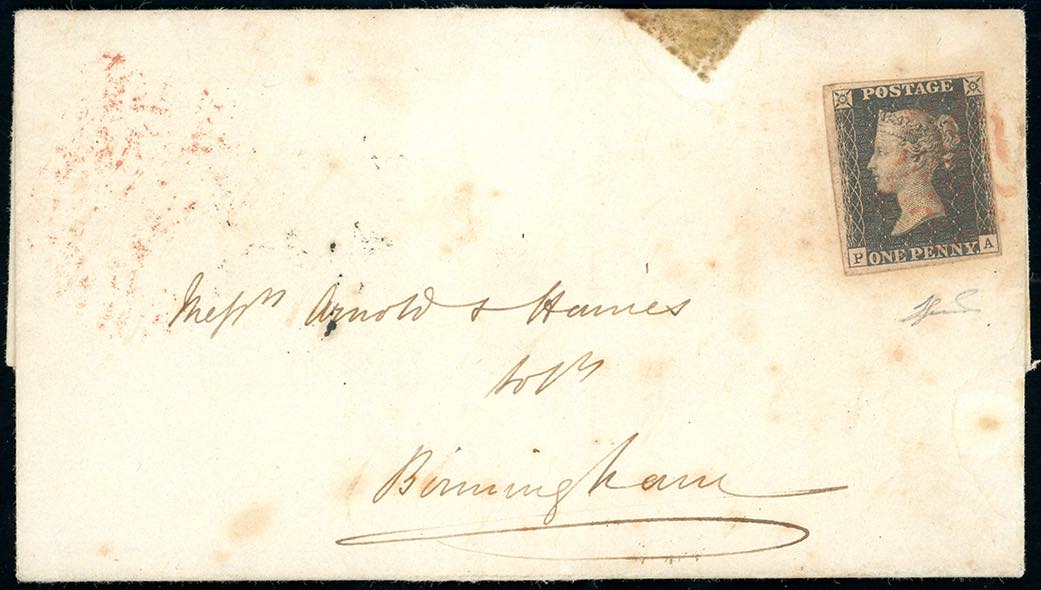 POSTAGE
P ONE PENNY A
Messrs Arnold & Haines
Solrs
Birmingham